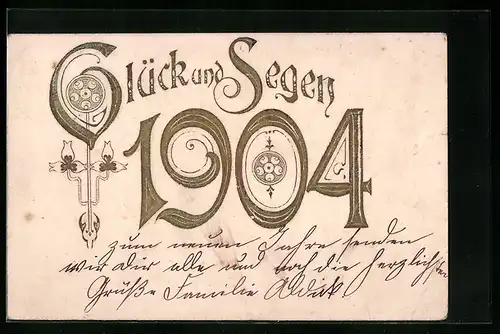 Glück und Segen
1904
zum neuen Jahre senden
wir Dir alle und noch die herzlichsten
Grüße Familie